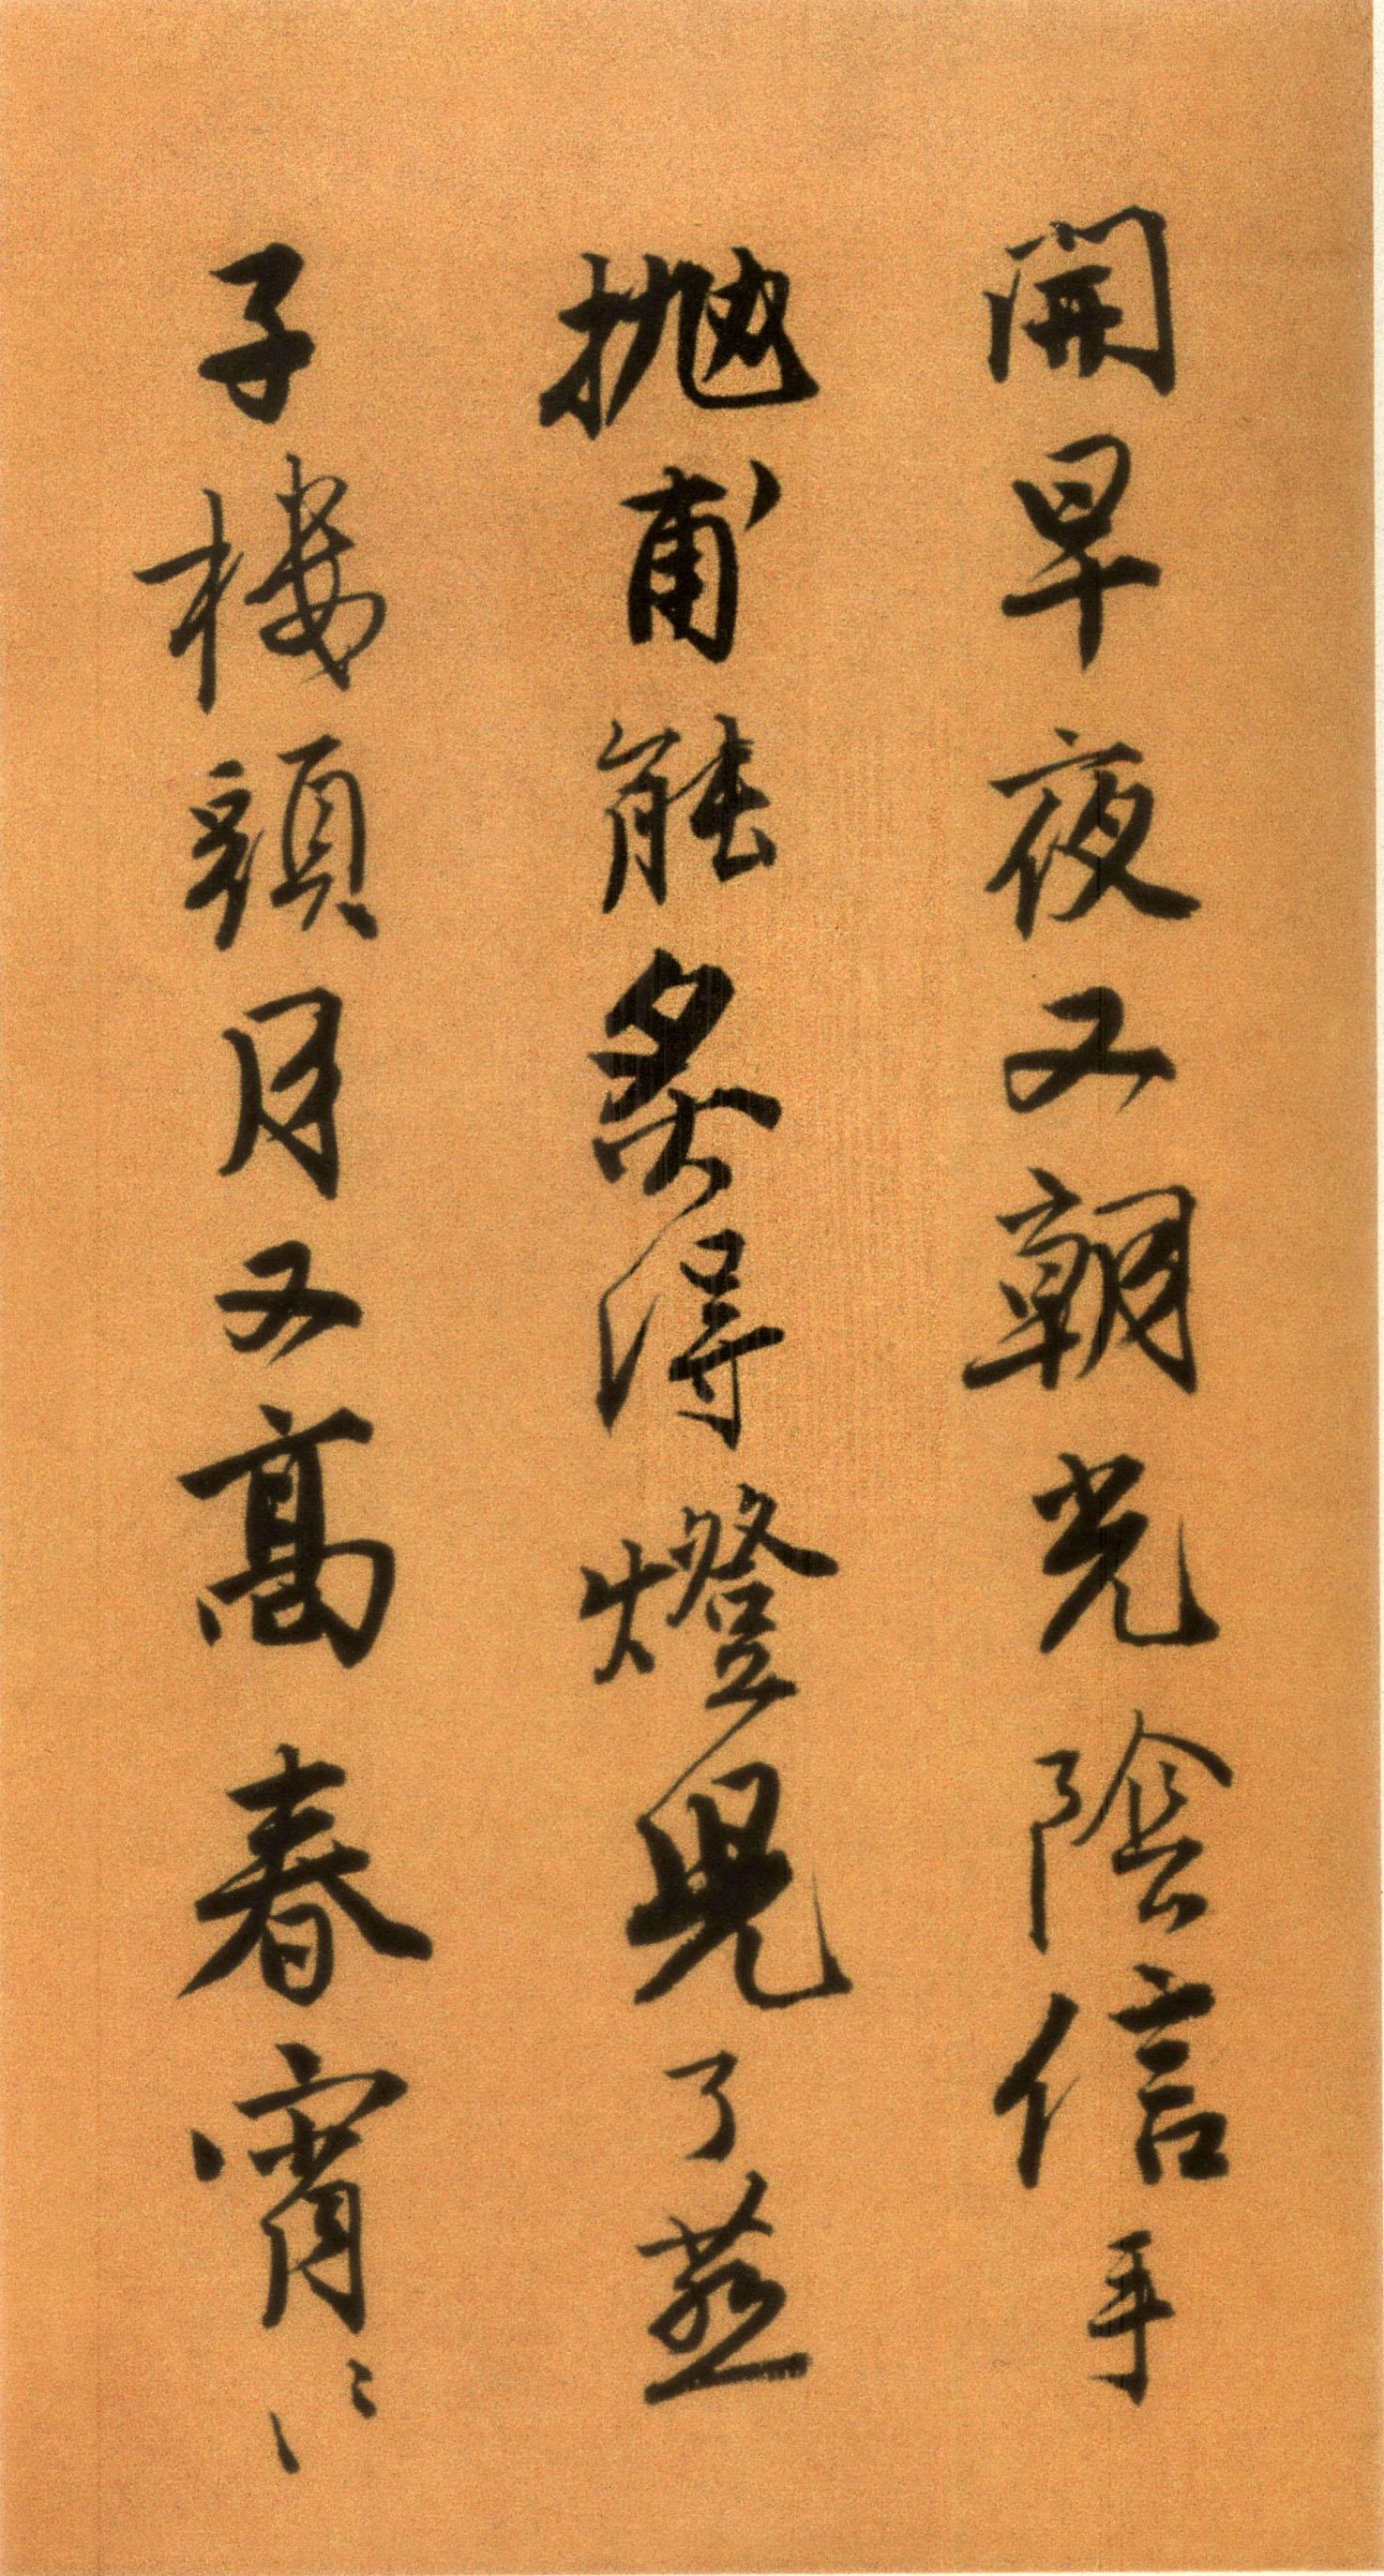 開早夜又朝光陰信手
抛甫能炙得燈兒了蒸
子樓頭月又高春宵〻